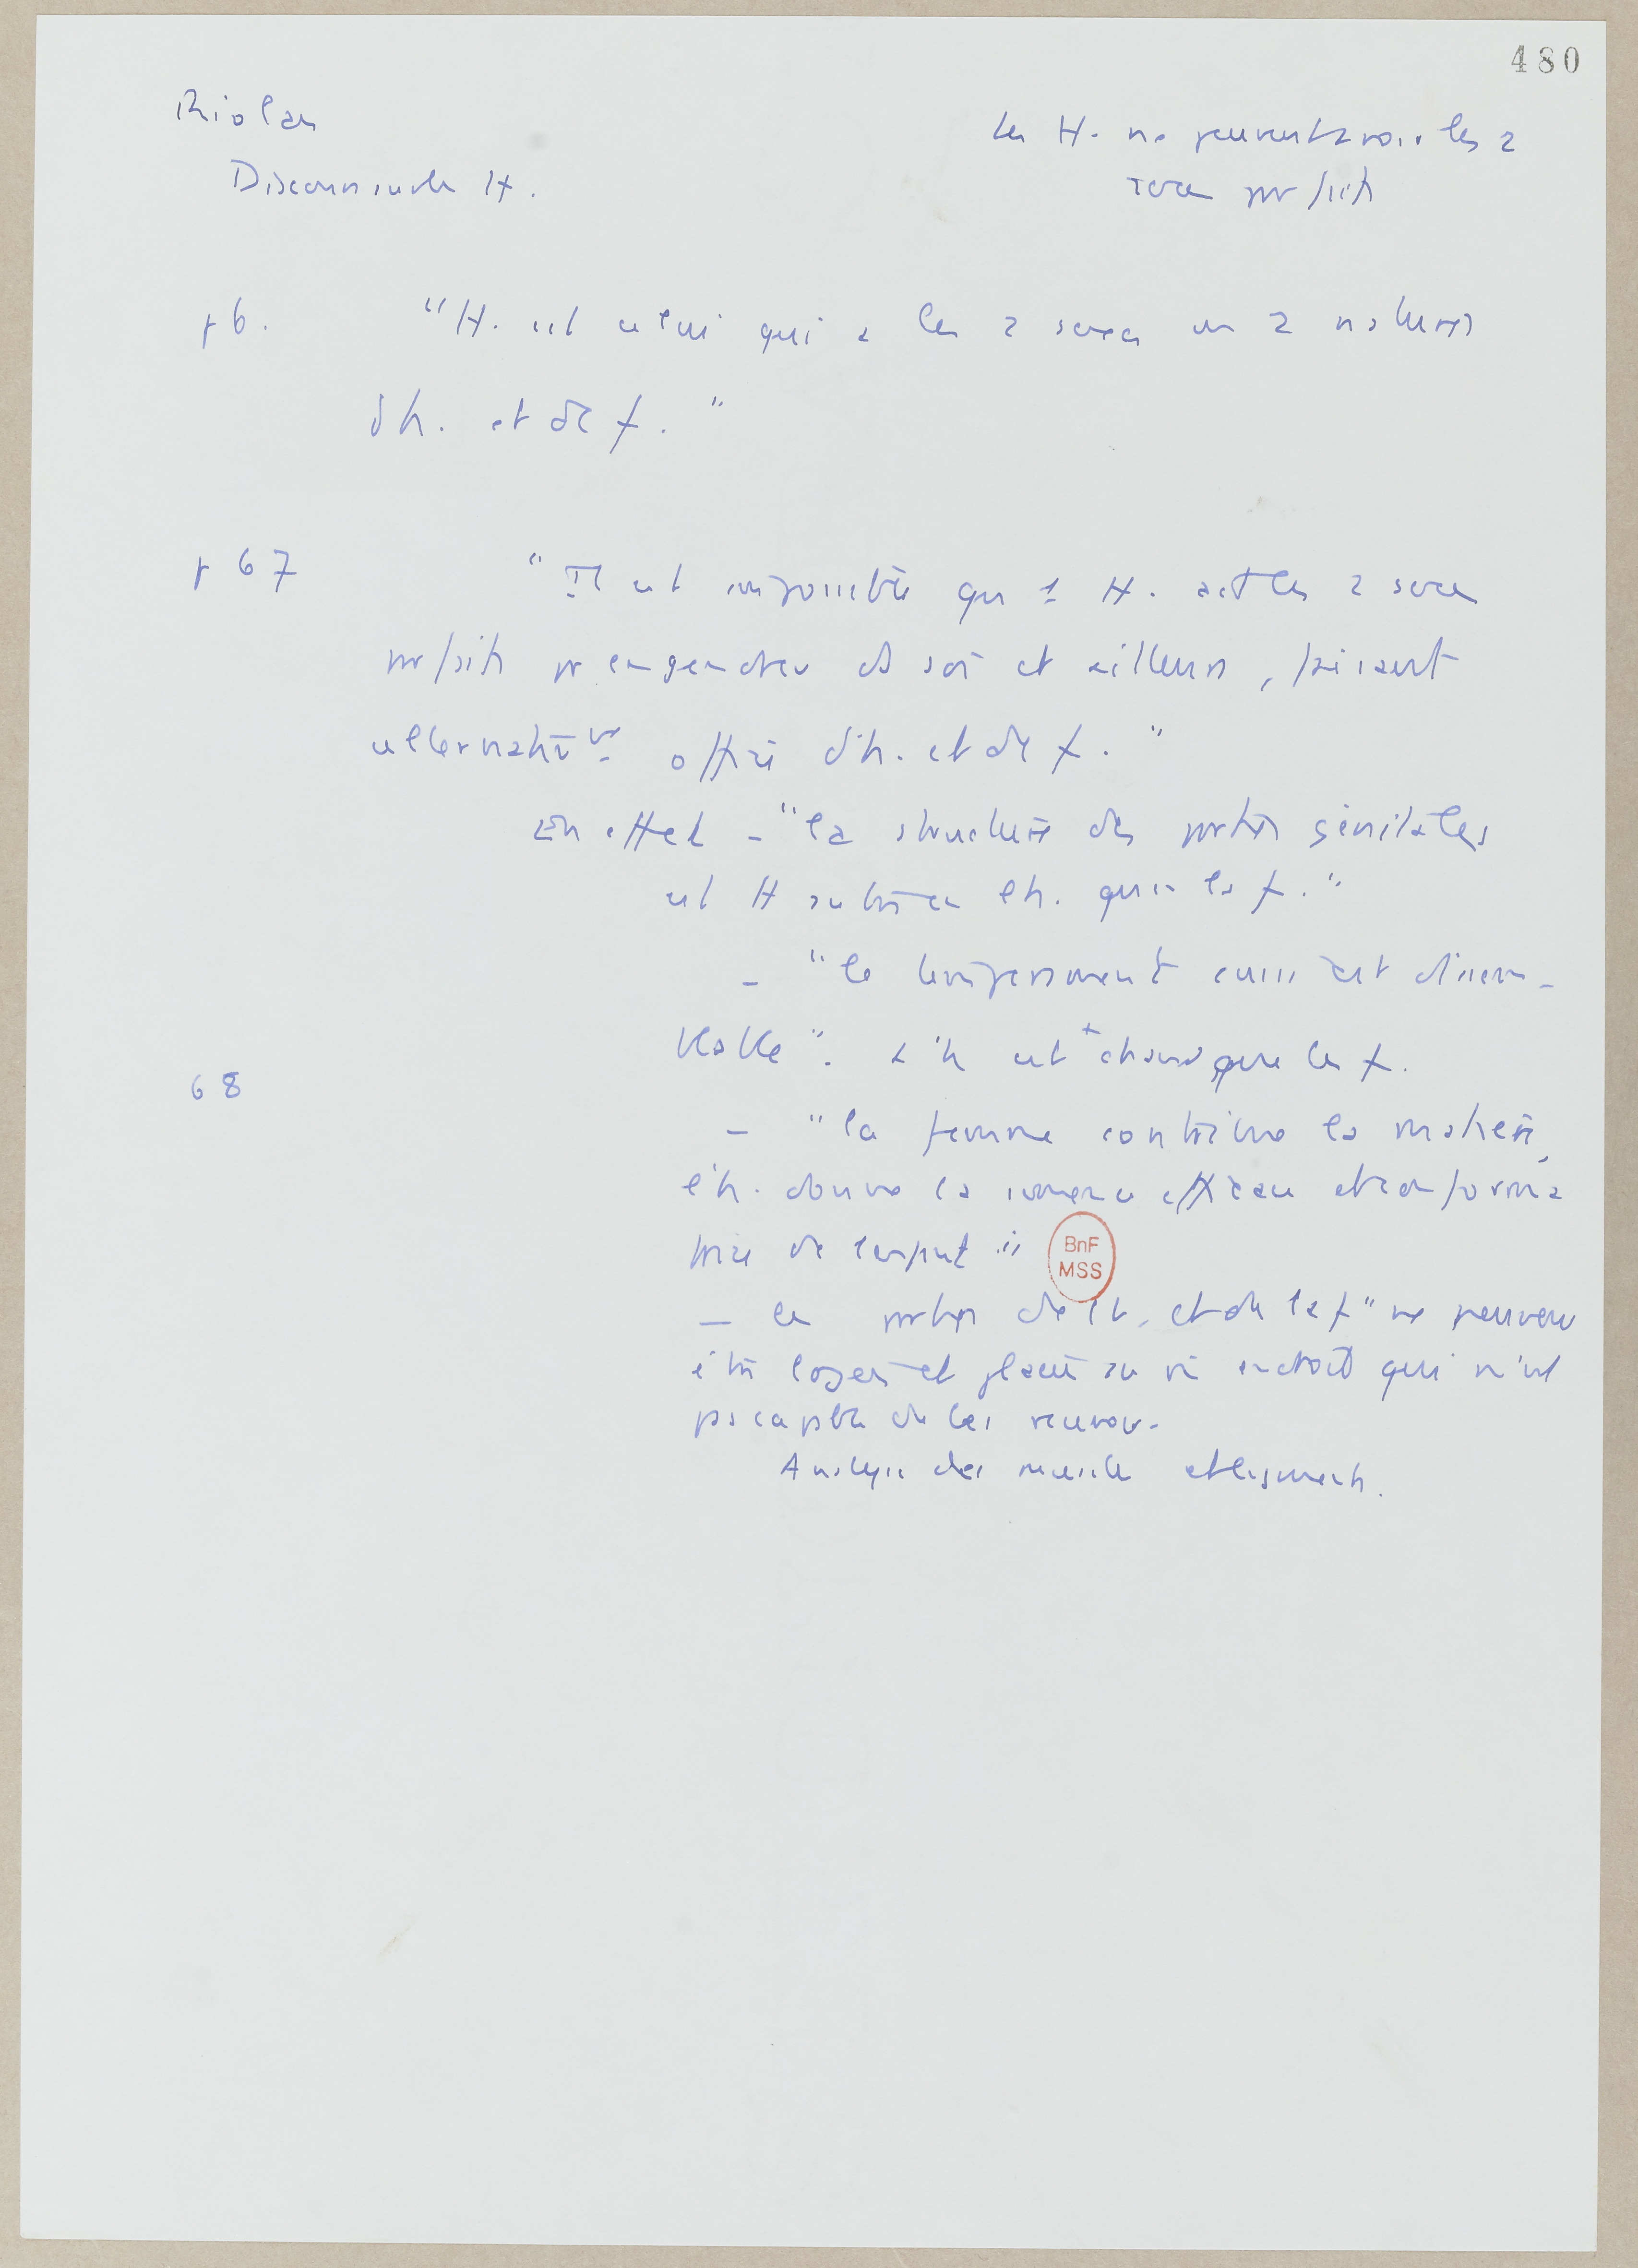 480
Riolan
Discours sur les H.
Les H. ne peuvent avoir les 2
sexes parfaits
p 6. "H. est celui qui a les 2 sexes ou 2 natures
d'h. et de f."
p 67 "Il est impossible qu'1 H. ait les 2 sexes
parfaits pr engendrer en soi et ailleurs, faisant
alternativemt office d'h. et de f."
En effet - "la structure des parties génitales
est H autre en l'h. qu'en la f."
- "le tempérament aussi est dissem-
blable". L'h est + chaud que la f.
68
- "la femme contribue la matière,
l'h. donne la semence efficace et conforma
trice de l'enfant"
BnF
MSS
- les parties de l'h. et de la f "ne peuvent
être logées et placées au mê endroit qui n'est
pas capable de les recevoir.
Analyse des muscles et ligaments.